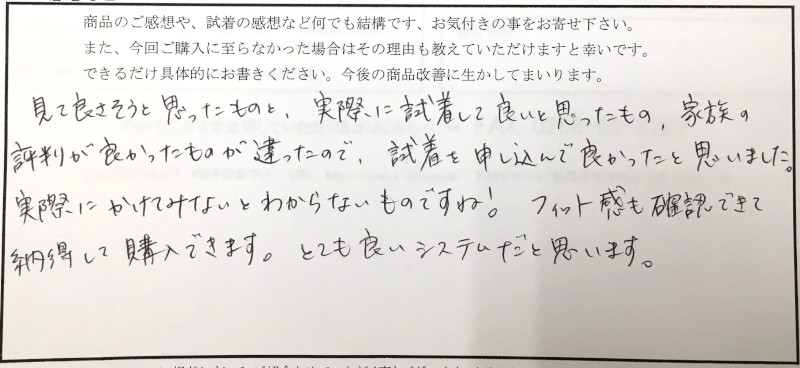 商品のご感想や、試着の感想など何でも結構です、お気付きの事をお寄せ下さい。
また、今回ご購入に至らなかった場合はその理由も教えていただけますと幸いです。
できるだけ具体的にお書きください。今後の商品改善に生かしてまいります。
見て良さそうと思ったものと、実際に試着して良いと思ったもの、家族の
評判が良かったものが違ったので、試着を申し込んで良かったと思いました。
実際にかけてみないとわからないものですね！ フィット感も確認できて
納得して購入できます。とても良いシステムだと思います。